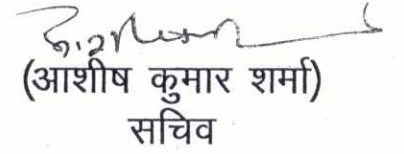 (आशीष कुमार शर्मा)
सचिव